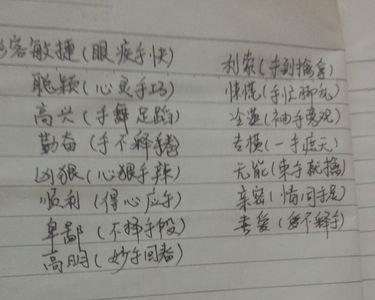 容敏捷(眼疾手快)
聪颖(心灵手巧)
高兴(手舞足蹈)
勤奋(手不释卷)
凶狠(心狠手辣)
顺利(得心应手)
卑鄙(不择手段)
高明(妙手回春)
利索(手到擒拿)
慌慌(手忙脚乱)
冷漠(袖手旁观)
专横(一手遮天)
无能(束手就擒)
亲密(情同手足)
喜爱(爱不释手)